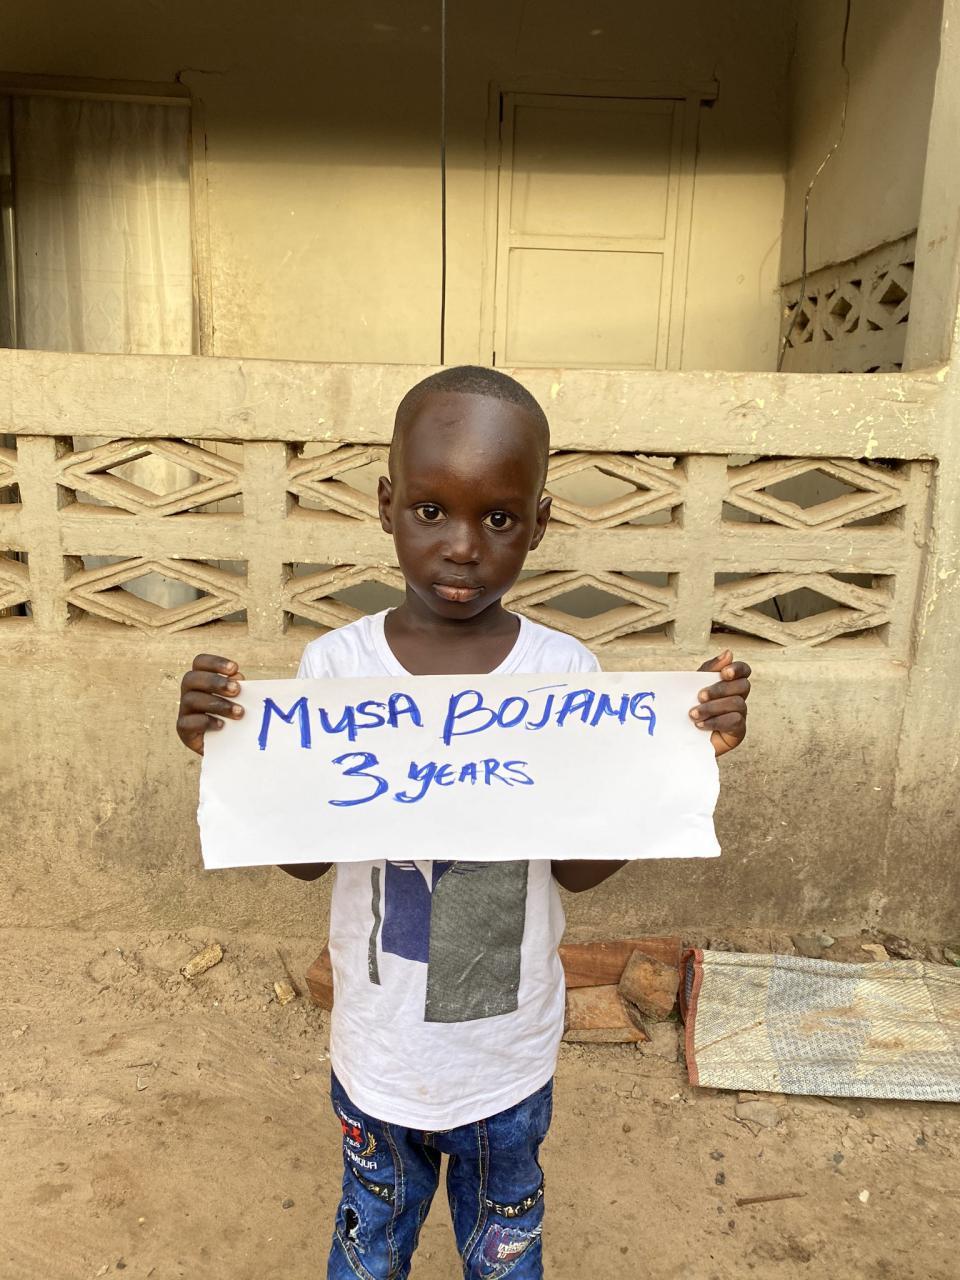 MUSA BOJANG
3 YEARS